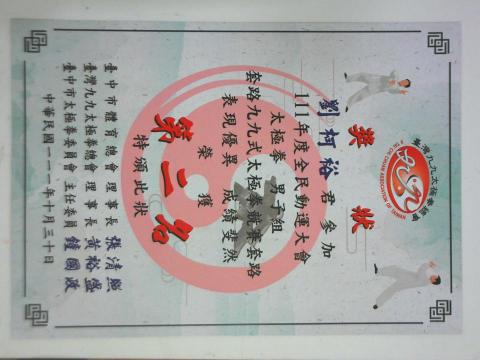 臺灣九九太極拳總會
獎狀
劉柯裕 君 參加
111年度全民動運大會
太極拳 男子組
套路九九式太極拳競賽套路
表現優異 成績斐然
榮獲
第二名
特頒此狀
臺中市體育總會 理事長 張清照
臺灣九九太極拳總會 理事長 黃裕盛
臺中市太極拳委員會 主任委員 鐘國政
中華民國一一一年十月三十日